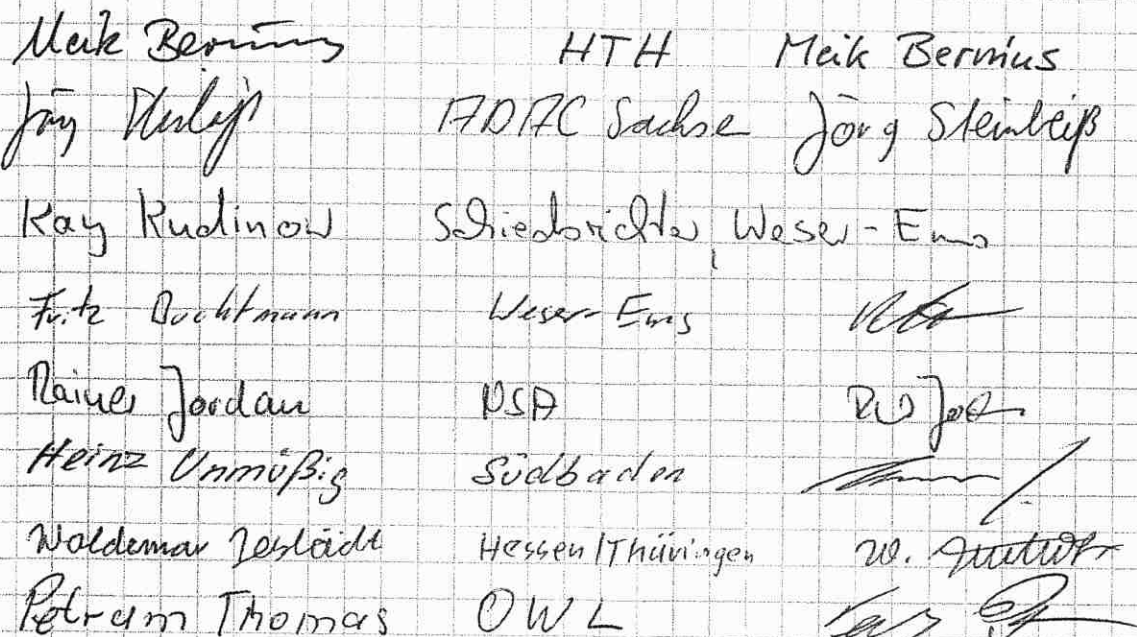 Meik Bernius HTH Meik Bernius
Jörg Steinbeiß ADAC Sachse Jörg Steinbeiß
Kay Kudinow Schiedsrichter, Weser-Ems
Fritz Buchtmann Weser-Ems
Rainer Jordan NSA
Heinz Unmüßig Südbaden
Waldemar Hessen/Thüringen W.
Petram Thomas OWL